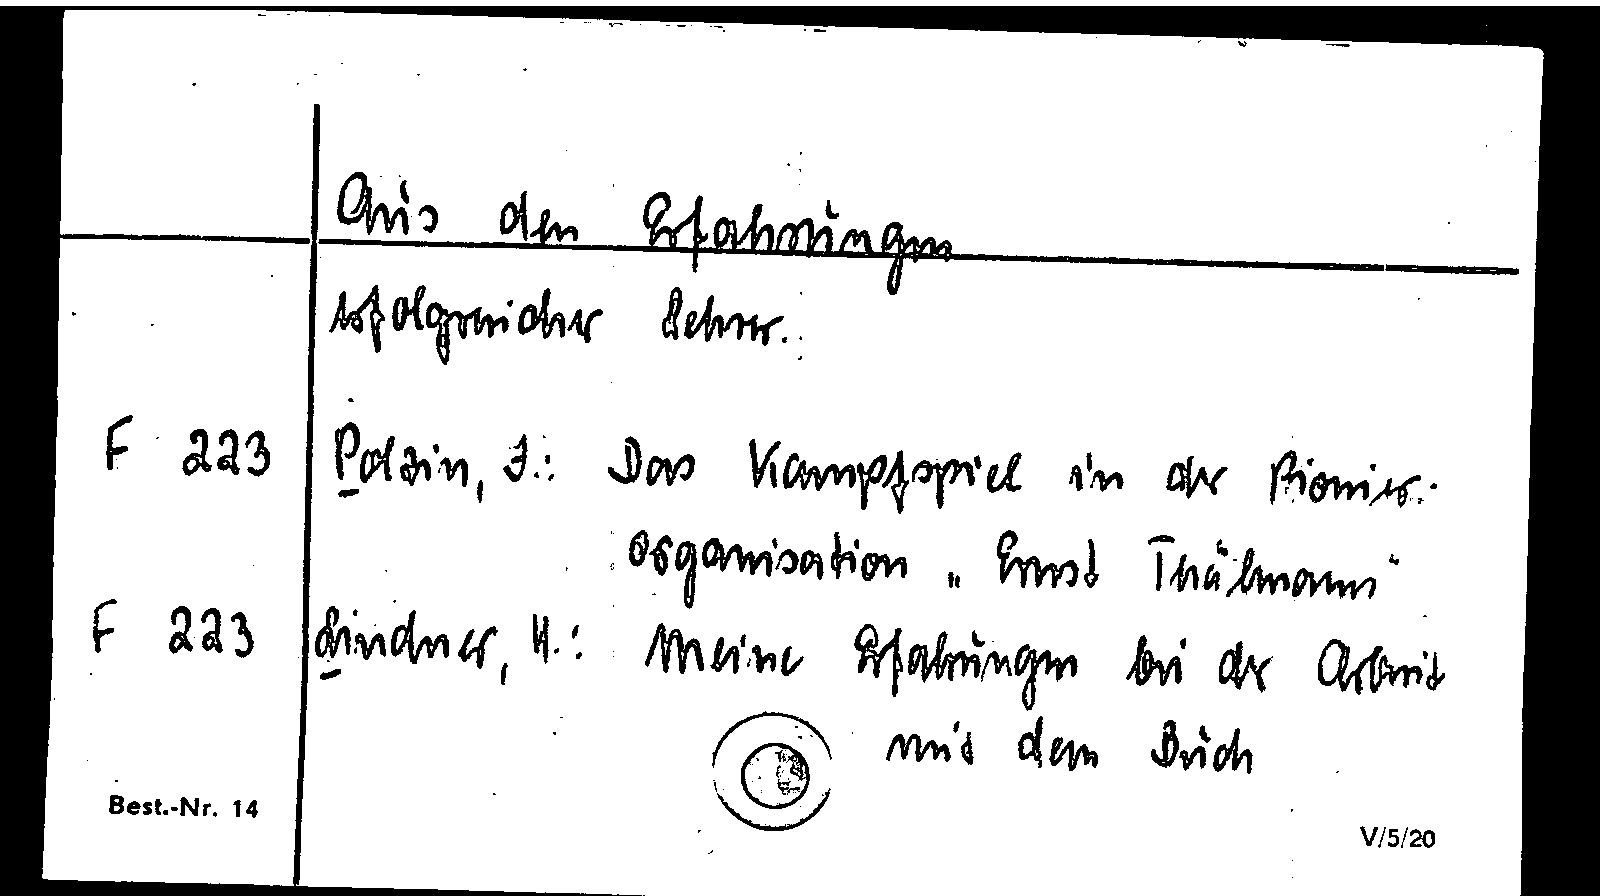 Aus den Erfahrungen
erfolgreicher Lehrer.
F 223 Polzin, J.: Das Kampfspiel in der Pionier-
organisation „Ernst Thälmann"
F 223 Lindner, H.: Meine Erfahrungen bei der Arbeit
mit dem Buch
Best.-Nr. 14
V/5/20